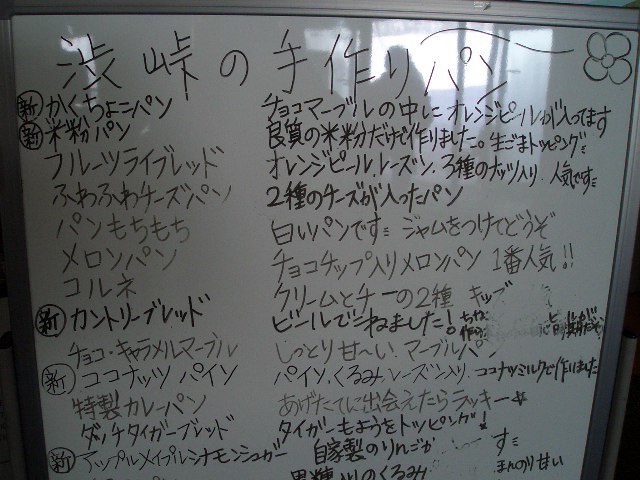 渋峠の手作りパン
新 かくちょこパン チョコマーブルの中にオレンジピールが入ってます
新 米粉パン 良質の米粉だけで作りました。生ごまトッピング
フルーツライブレッド オレンジピール、レーズン、3種のナッツ入り、人気です
ふわふわチーズパン 2種のチーズが入ったパン
パンもちもち 白いパンです ジャムをつけてどうぞ
メロンパン チョコチップ入りメロンパン 1番人気!!
コルネ クリームとチーの2種 キッズ
新 カントリーブレッド ビールでこねました!
チョコ・キャラメルマーブル しっとり甘〜い マーブルパン
新 ココナッツパイン パイン、くるみ、レーズン入り、ココナツミルクで作りました
特製カレーパン あげたてに出会えたらラッキー☆
ダッチタイガーブレッド タイガーもようをトッピング!
新 アップルメイプルシナモンシュガー 自家製のりんごが す
くるみ まんのり甘い